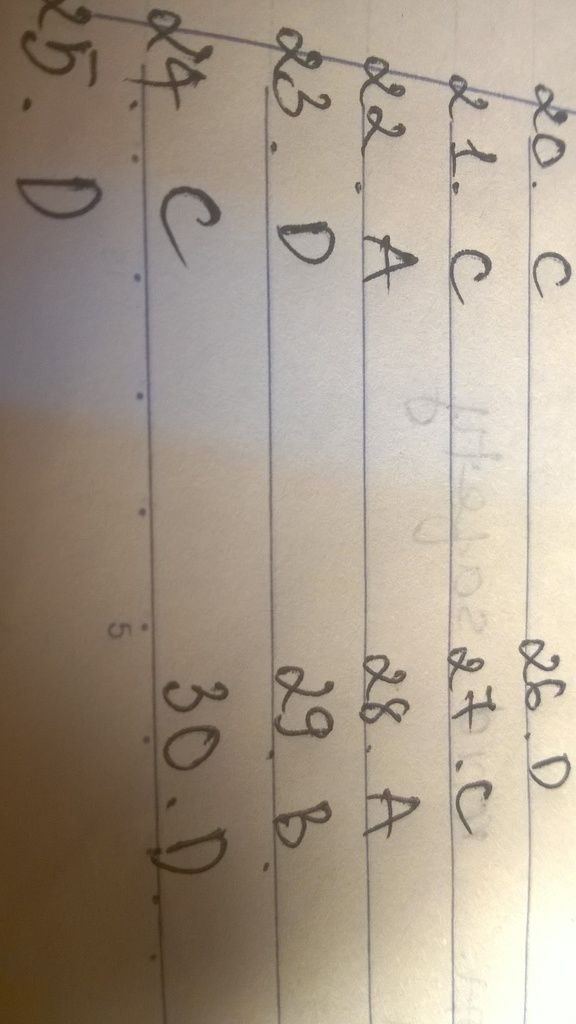 20. C 26. D
21. C 27. C
22. A 28. A
23. D 29. B
24. C 30. D
25. D
5